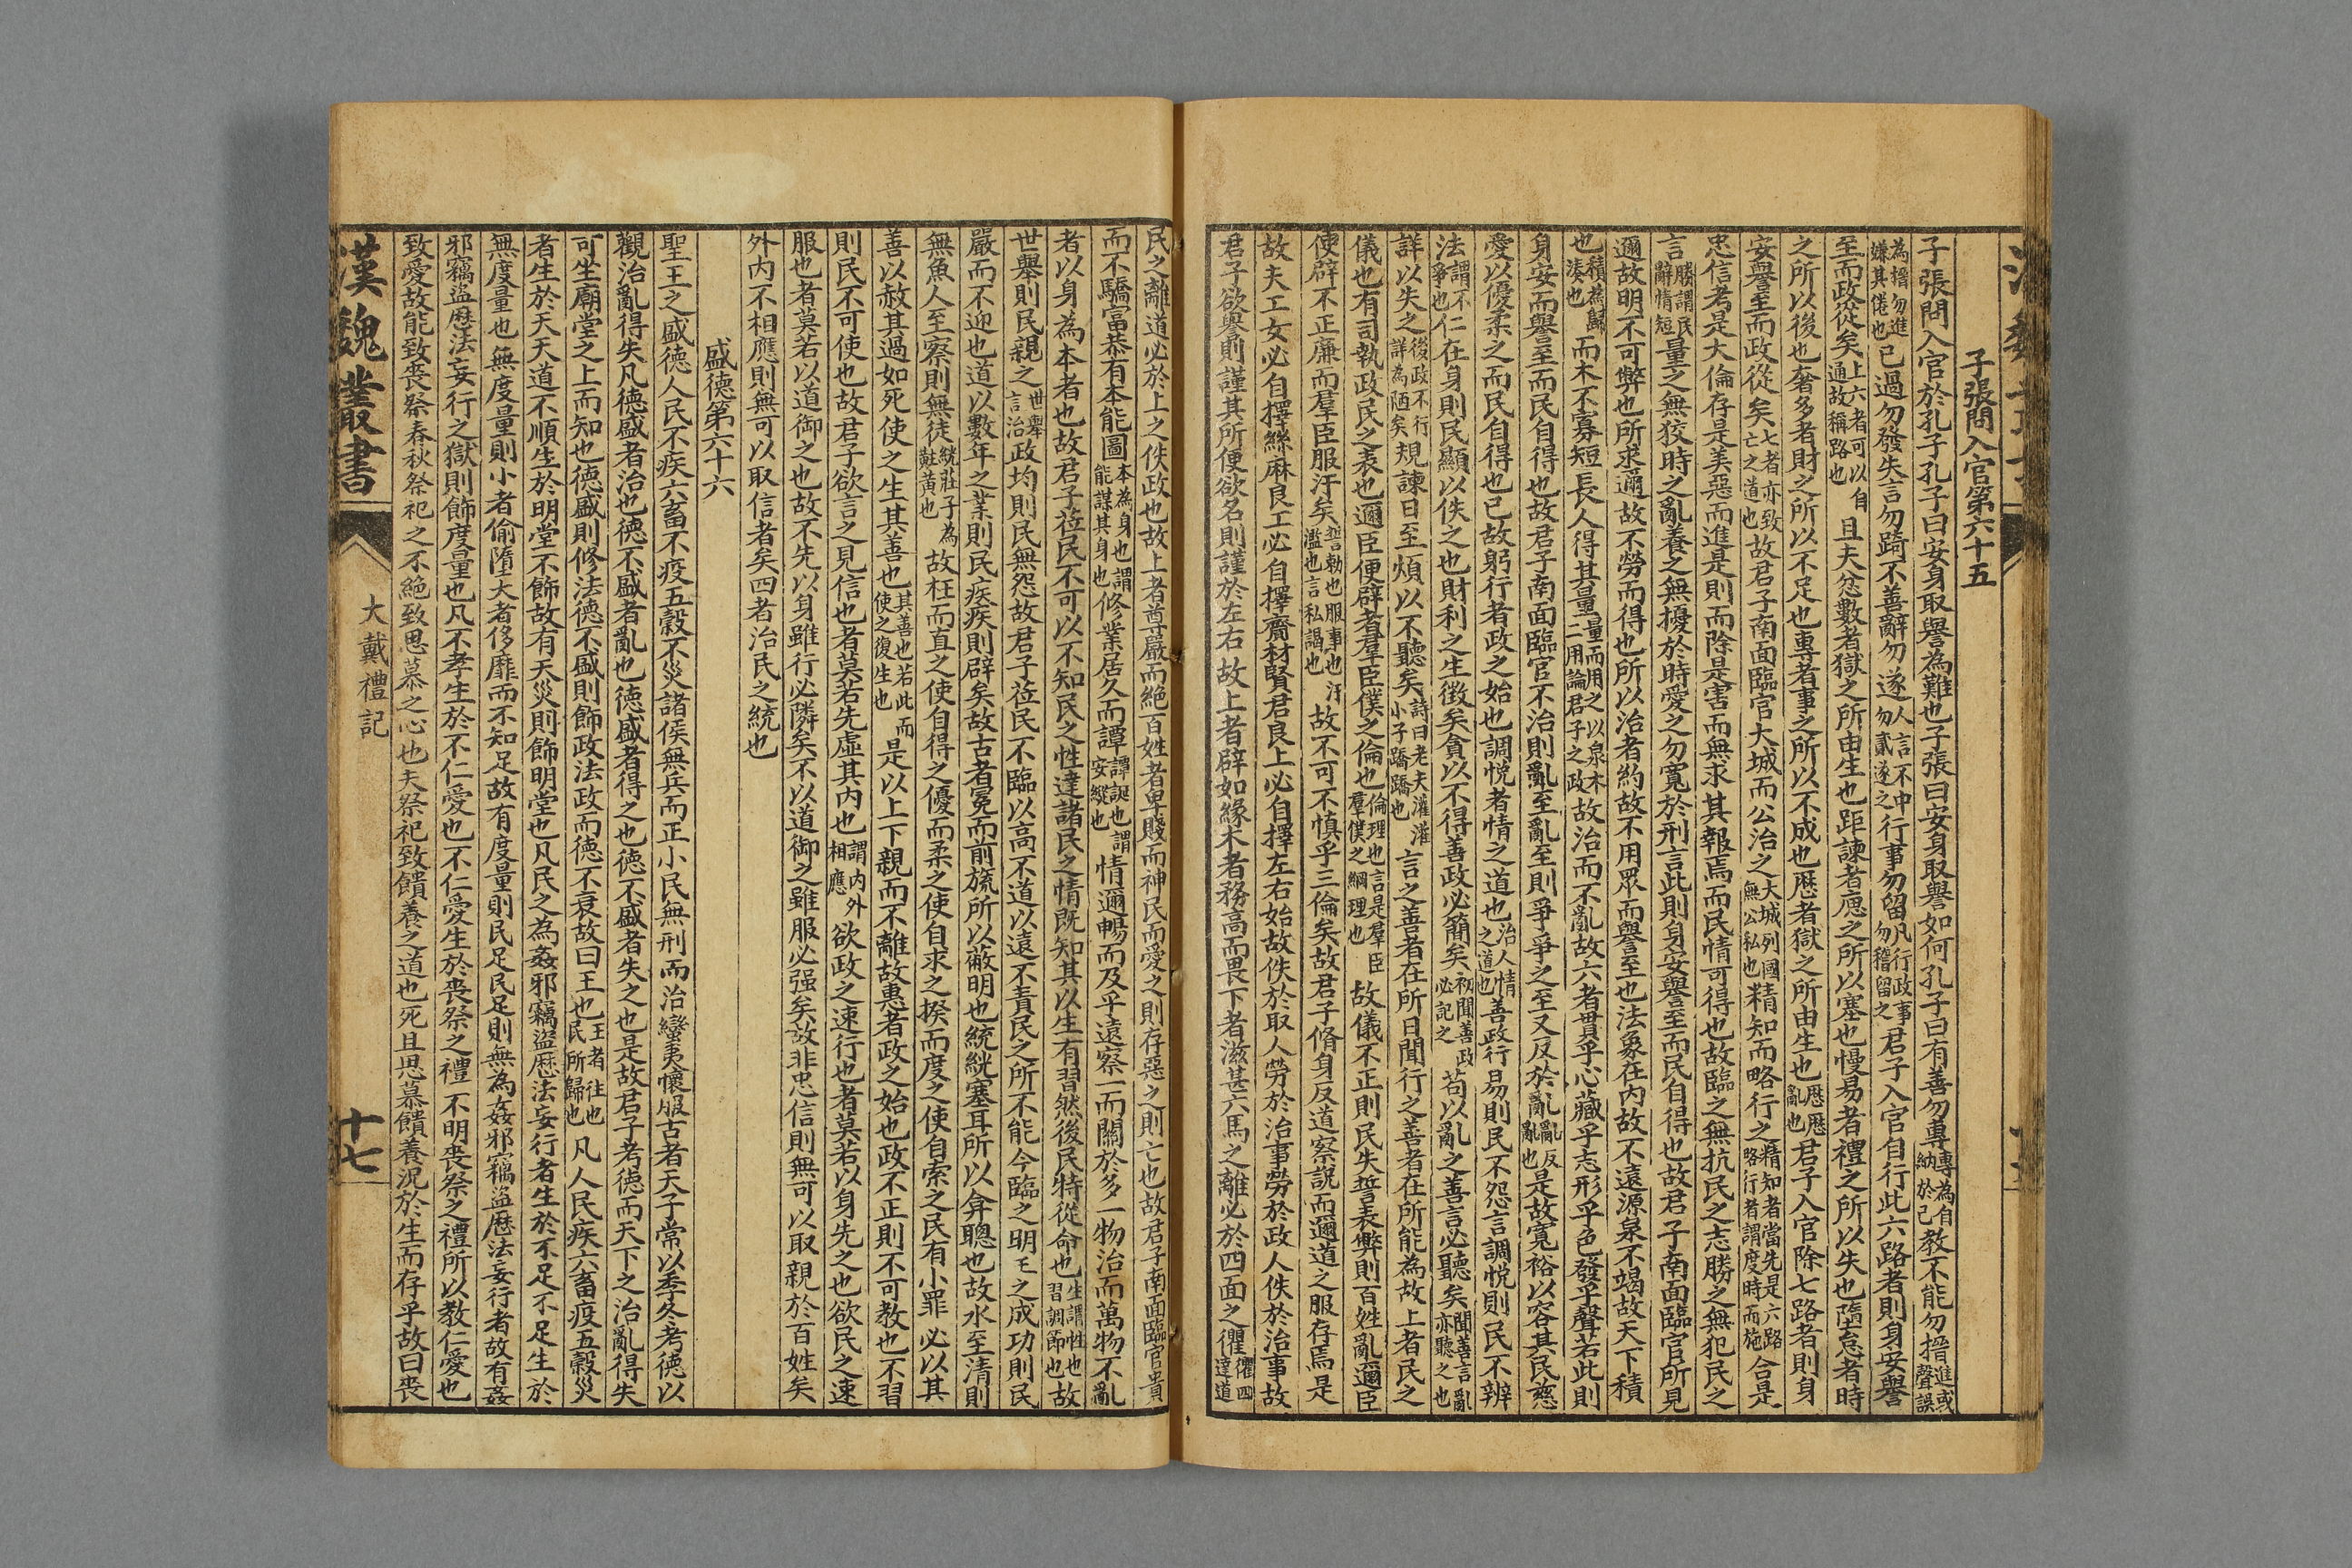 子張問入官第六十五
子張問入官於孔子孔子曰安身取譽為難也子張曰安身取譽如何孔子曰有善勿專專為自納於己教不能勿搢進或聲誤
為搢勿進嫌其倦也已過勿發失言勿踦不善辭勿遂人言不中勿貳遂之行事勿留凡行政事勿稽留之君子入官自行此六路者則身安譽
至而政從矣上六者可以自通故稱路也且夫忿數者獄之所由生也距諫者慮之所以塞也慢易者禮之所以失也墮怠者時
之所以後也奢多者財之所以不足也專者事之所以不成也歷者獄之所由生也歷歷亂也君子入官除七路者則身
安譽至而政從矣七者亦致亡之道也故君子南面臨官大城而公治之大城列國無公私也精知而略行之精知者當先是六路略行者謂度時而施合是
忠信考是大倫存是美惡而進是利而除是害而無求其報焉而民情可得也故臨之無抗民之志勝之無犯民之
言勝謂民辭情短量之無狡時之亂養之無擾於時愛之勿寬於刑言此則身安譽至而民自得也故君子南面臨官所見
邇故明不可弊也所求邇故不勞而得也所以治者約故不用眾而譽至也法象在內故不遠源泉不竭故天下積
也積為歸湊也而木不寡短長人得其量量而用之以泉木二用論君子之政故治而不亂故六者貫乎心藏乎志形乎色發乎聲若此則
身安而譽至而民自得也故君子南面臨官不治則亂至亂至則爭爭之至又反於亂亂反亂也是故寬裕以容其民慈
愛以優柔之而民自得也已故躬行者政之始也調悅者情之道也治人情之道也善政行易則民不怨言調悅則民不辨
法謂不爭也仁在身則民顯以佚之也財利之生徵矣貪以不得善政必簡矣初聞善政必記之苟以亂之善言必聽矣聞善言亂亦聽之也
詳以失之後政不行詳為陋矣規諫日至煩以不聽矣詩曰老夫灌灌小子蹻蹻也言之善者在所日聞行之善者在所能為故上者民之
儀也有司執政民之表也邇臣便辟者羣臣僕之倫也倫理也言是羣臣羣僕之綱理也故儀不正則民失誓表弊則百姓亂邇臣
便辟不正廉而羣臣服汙矣誓勑也服事也汙濫也言私謁也故不可不慎乎三倫矣故君子脩身反道察說而邇道之服存焉是
故夫工女必自擇絲麻良工必自擇齎材賢君良上必自擇左右始故佚於取人勞於治事勞於政人佚於治事故
君子欲譽則謹其所便欲名則謹於左右故上者辟如緣木者務高而畏下者滋甚六馬之離必於四面之衢衢四達道
民之離道必於上之佚政也故上者尊嚴而絕百姓者卑賤而神民而愛之則存惡之則亡也故君子南面臨官貴
而不驕富恭有本能圖本為身也謂能謀其身也修業居久而譚譚誕也謂安縱也情邇暢而及乎遠察一而關於多一物治而萬物不亂
者以身為本者也故君子莅民不可以不知民之性達諸民之情既知其以生有習然後民特從命也生謂性也習調節也故
世舉則民親之世舉言治政均則民無怨故君子莅民不臨以高不道以遠不責民之所不能今臨之明王之成功則民
嚴而不迎也道以數年之業則民疾疾則辟矣故古者冕而前旒所以蔽明也統絖塞耳所以弇聰也故水至清則
無魚人至察則無徒絖莊子為黈黃也故枉而直之使自得之優而柔之使自求之揆而度之使自索之民有小罪必以其
善以赦其過如死使之生其善也其善也若此而使之復生也是以上下親而不離故惠者政之始也政不正則不可教也不習
則民不可使也故君子欲言之見信也者莫若先虛其內也謂內外相應欲政之速行也者莫若以身先之也欲民之速
服也者莫若以道御之也故不先以身雖行必隣矣不以道御之雖服必强矣故非忠信則無可以取親於百姓矣
外內不相應則無可以取信者矣四者治民之統也
盛德第六十六
聖王之盛德人民不疾六畜不疫五穀不災諸侯無兵而正小民無刑而治蠻夷懷服古者天子常以季冬考德以
觀治亂得失凡德盛者治也德不盛者亂也德盛者得之也德不盛者失之也是故君子考德而天下之治亂得失
可生廟堂之上而知也德盛則修法德不盛則飾政法政而德不衰故曰王也王者往也民所歸也凡人民疾六畜疫五穀災
者生於天天道不順生於明堂不飾故有天災則飾明堂也凡民之為姦邪竊盜歷法妄行者生於不足不足生於
無度量也無度量則小者偷墮大者侈靡而不知足故有度量則民足民足則無為姦邪竊盜歷法妄行者故有姦
邪竊盜歷法妄行之獄則飾度量也凡不孝生於不仁愛也不仁愛生於喪祭之禮不明喪祭之禮所以教仁愛也
致愛故能致喪祭春秋祭祀之不絕致思慕之心也夫祭祀致饋養之道也死且思慕饋養況於生而存乎故曰喪
漢魏叢書
大戴禮記
十七